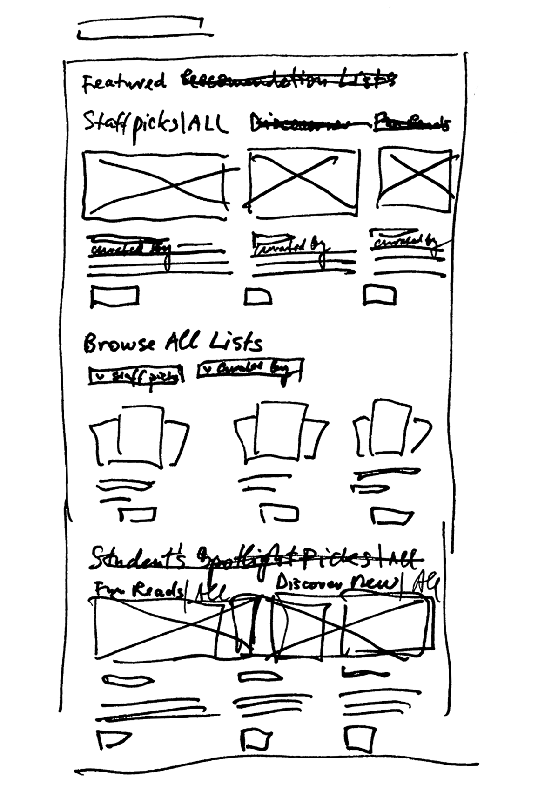 Featured Recomendation Lists
Staff picks|ALL Discover Fun Reads
curated by curated by curated by
Browse All Lists
v Staff picks v Curated by
Student's Spotlight Picks|All
Fun Reads|All Discover New|All